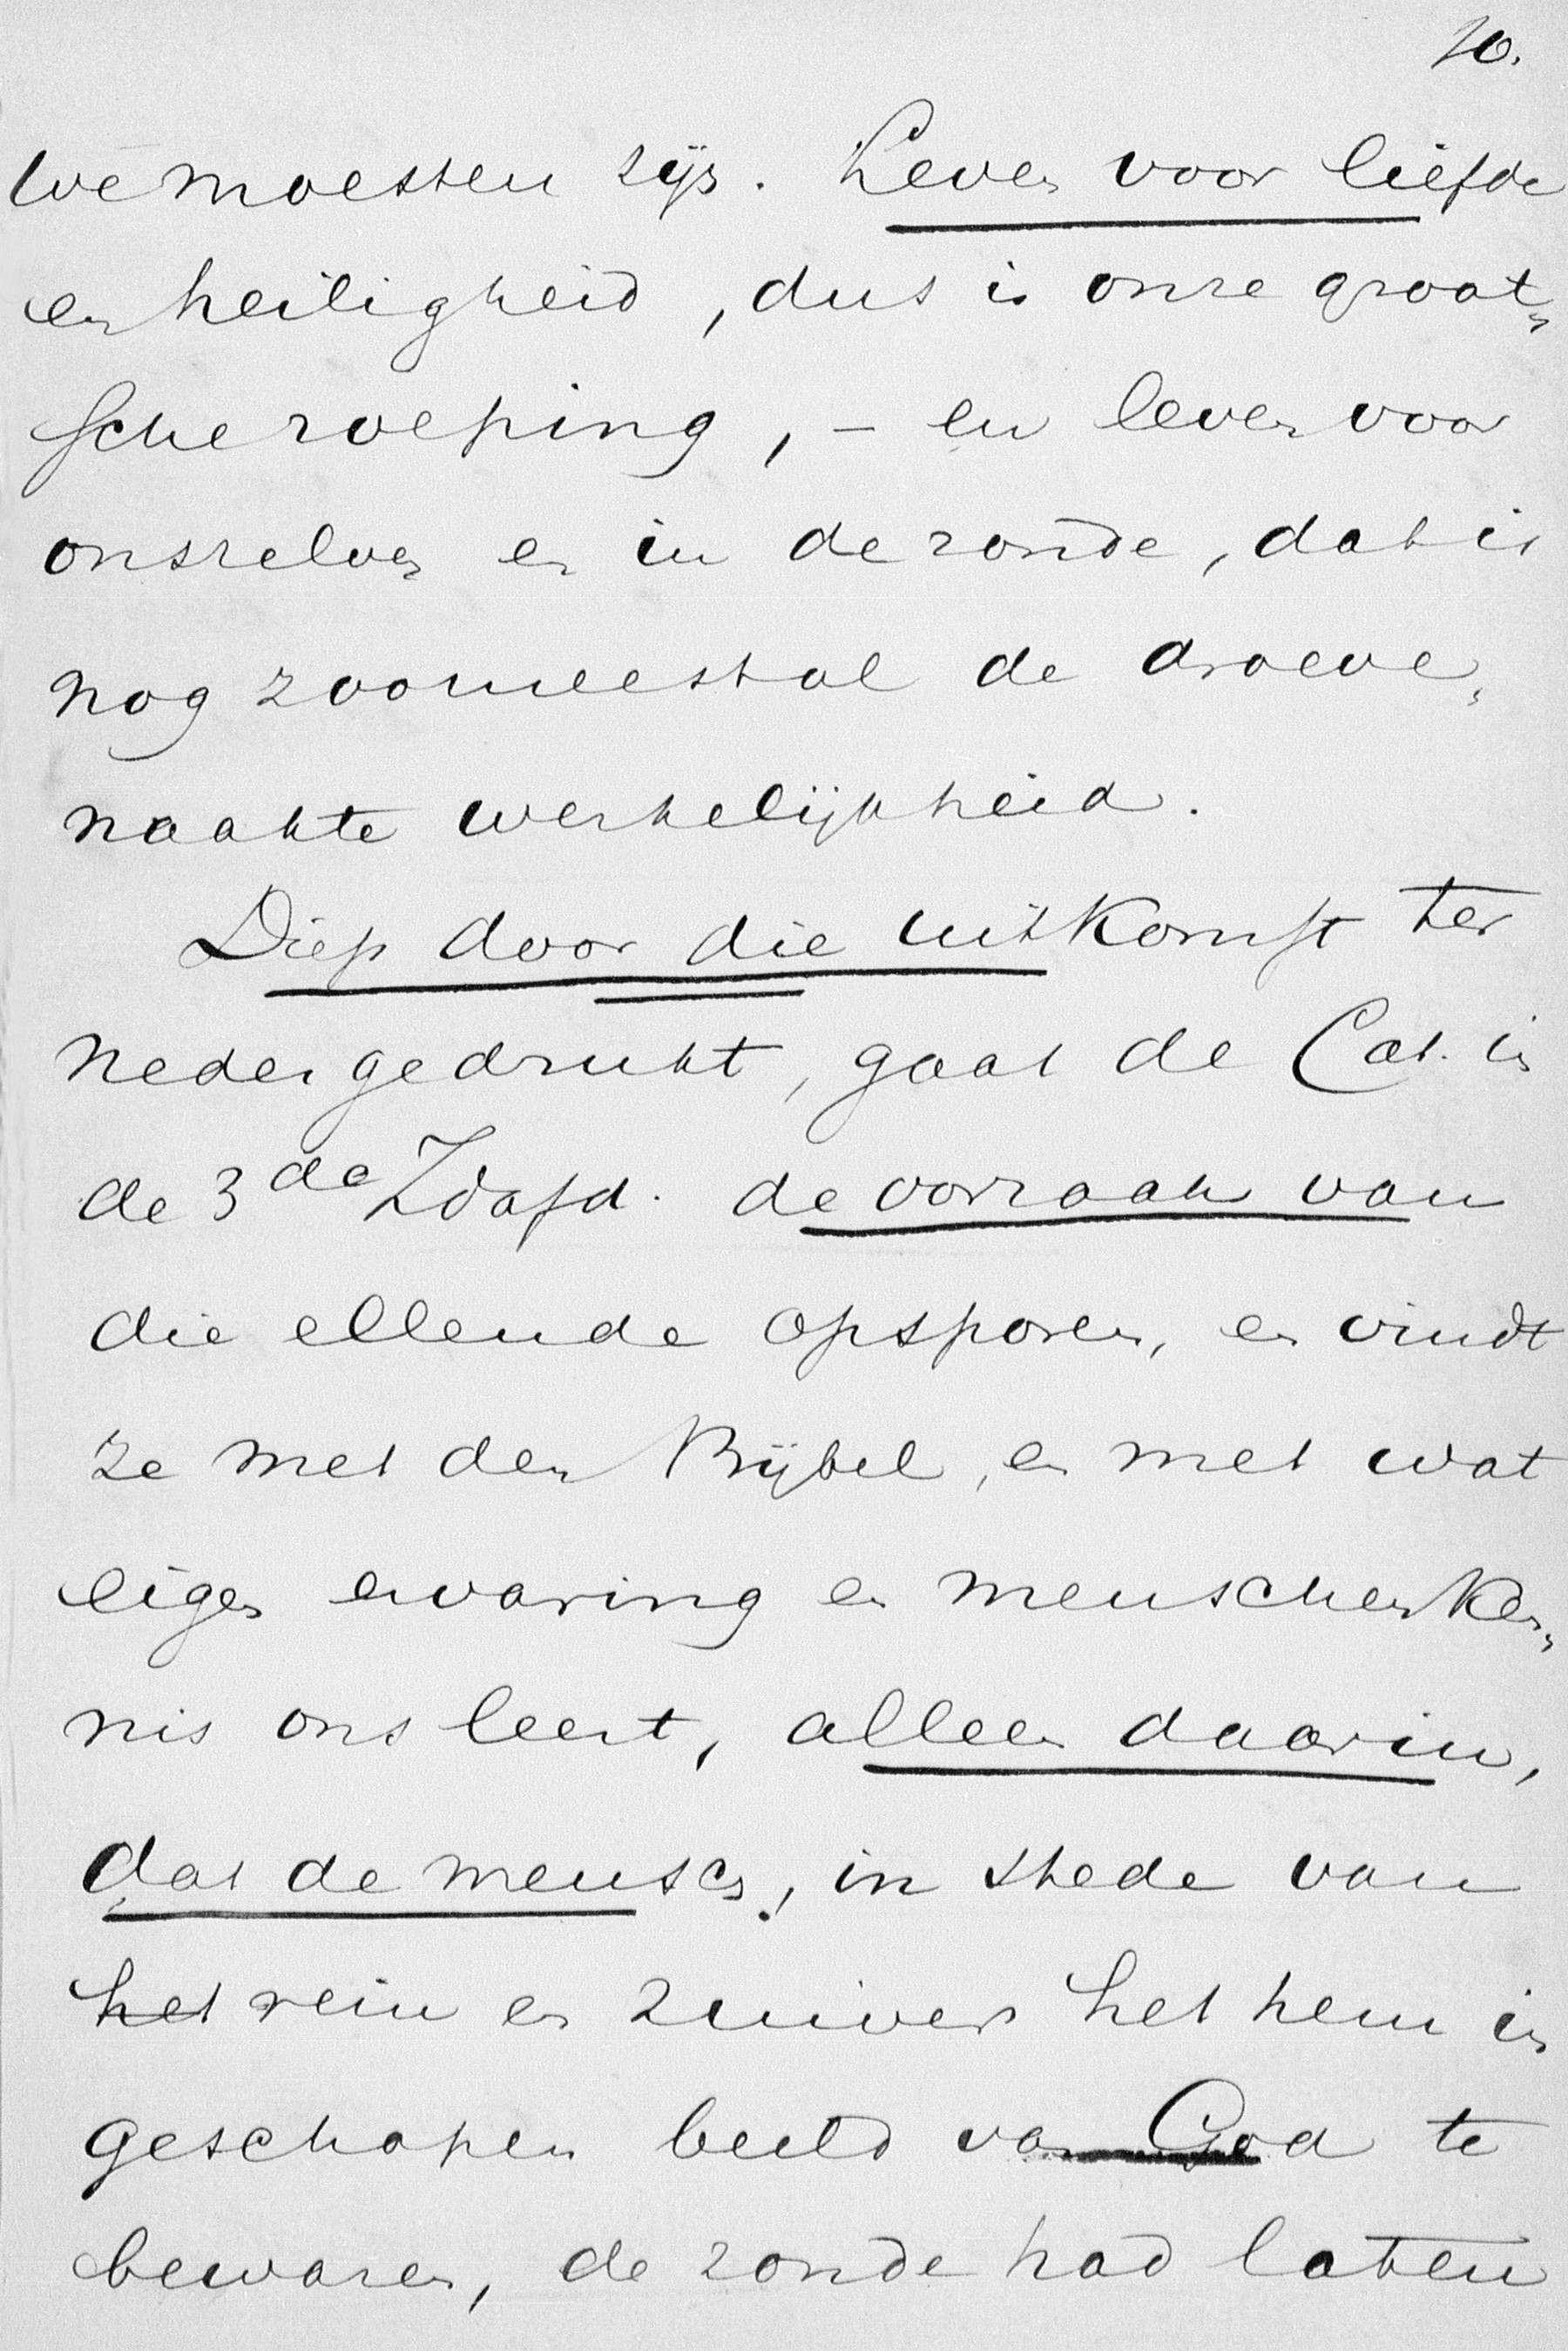 10.
we moesten zijn. Leven voor liefde
en heiligheid, dus is onze groot„
sche roeping, – en leven voor
onszelven en in de zonde, dat is
nog zoo meestal de droeve,
naakte werkelijkheid.
Diep door die uitkomst ter
nedergedrukt, gaat de Cat. in
de 3de Zdafd. de oorzaak van
die ellende opsporen, en vindt
ze met den Bijbel, en met wat
eigen ervaring en menschenken„
nis ons leert, alleen daarin,
dat de mensch, in stede van
het rein en zuiver het hem in
geschapen beeld van God te
bewaren, de zonde had laten